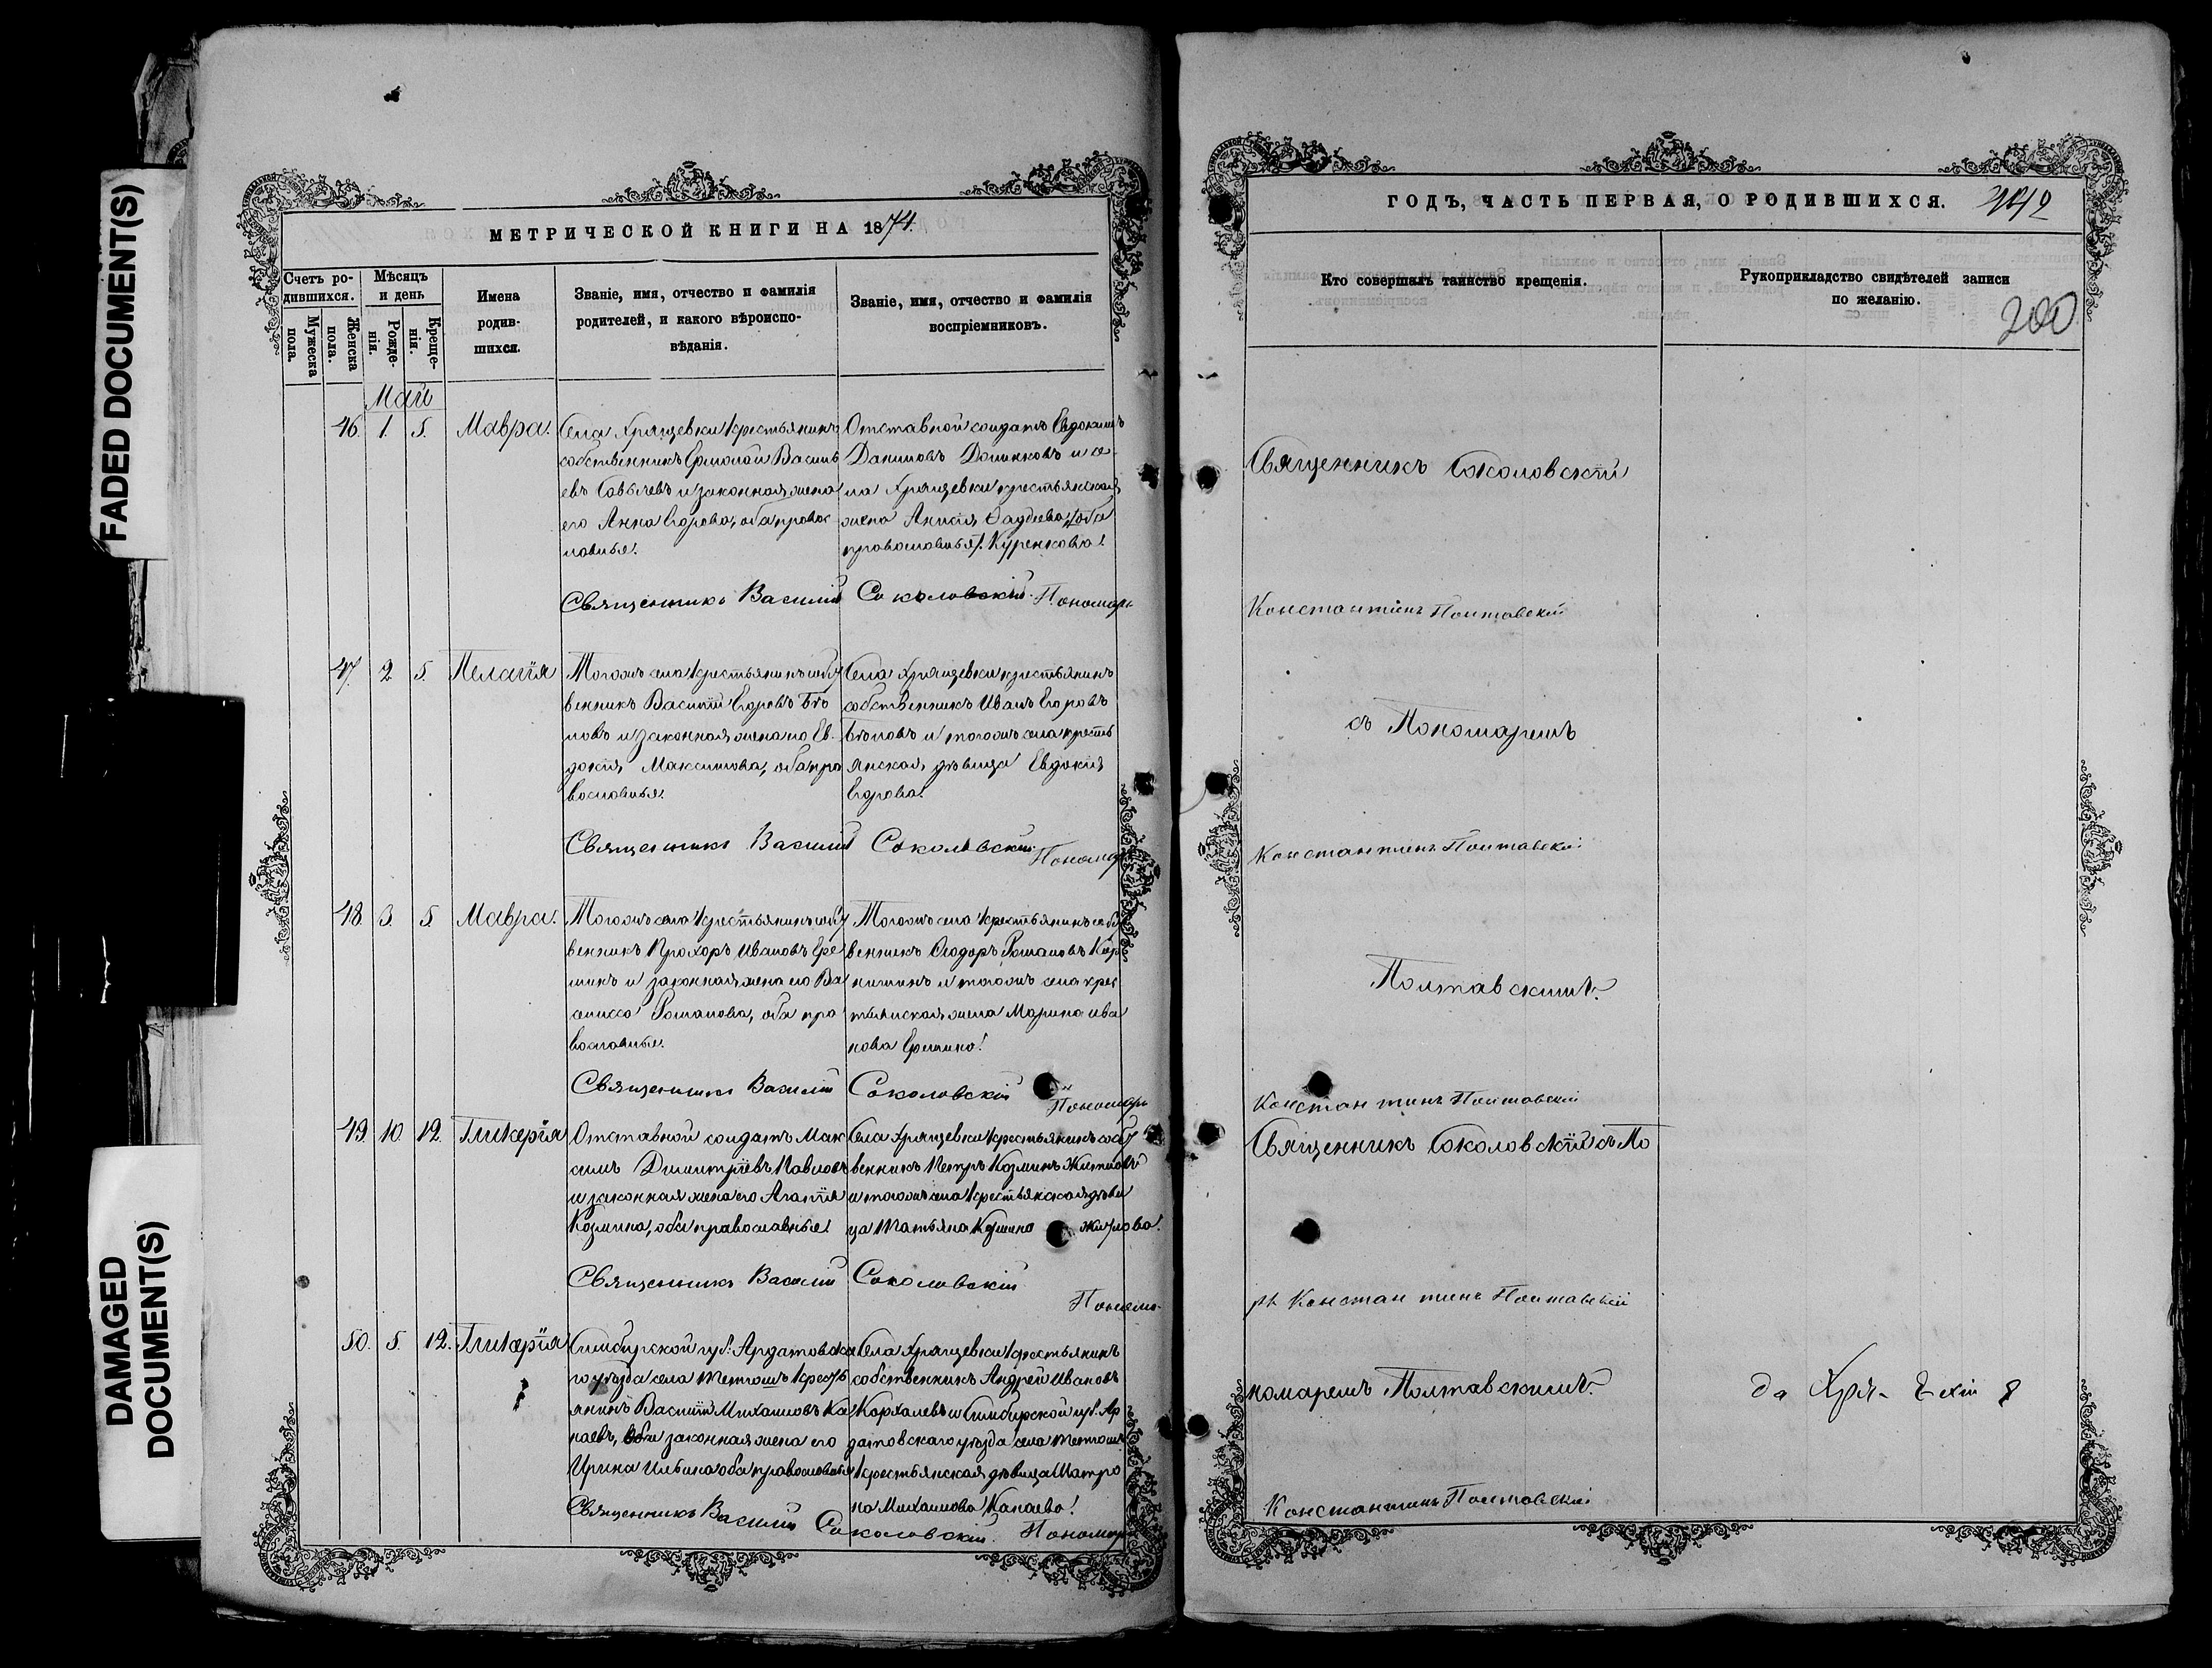 FADED DOCUMENT(S)
DAMAGED
DOCUMENT(S)
МЕТРИЧЕСКОЙ КНИГИ НА 1874.
Счетъ ро-
дившихся.
Мужеска
пола.
Женска
пола.
Мѣсяцъ
и день
Рожде-
нія.
Креще-
нія.
Имена
родив-
шихся.
Званіе, имя, отчество и фамилія
родителей, и какого вѣроиспо-
вѣданія.
Званіе, имя, отчество и фамилія
воспріемниковъ.
Май
46. 1. 5. Мавра.
Села Хрящевки крестьянинъ
собственникъ Ермолай Василь
евъ и законная жена
его Анна Егорова, оба правос
лавные.
Отставной солдатъ Евдокимъ
Даниловъ и се-
ла Хрящевки крестьянская
жена Анисія Фаддеева
православные. Куренкова.
Священникъ Василій Соколовскій. Пономарь
47. 2 5. Пелагія
Тогожъ села крестьянинъ собст
венникъ Василій Егоровъ Бѣ
ловъ и законная жена его Ев-
докія Максимова, оба пра
вославные.
Села Хрящевки крестьянинъ
собственникъ Иванъ Егоровъ
Бѣловъ и тогожъ села кресть
янская дѣвица Евдокія
Егорова.
Священникъ Василій Соколовскій. Пономарь
48. 3. 5 Мавра.
Тогожъ села крестьянинъ собст
венникъ Прохоръ Ивановъ Ере
минъ и законная жена его Ва
силисса Романова, оба пра
вославные.
Тогожъ села крестьянинъ собст
венникъ Ѳеодоръ Романовъ
и тогожъ села крес
тьянская жена Марина Ива
нова Еремина.
Священникъ Василій Соколовскій
Пономарь
49. 10. 12. Гликерія
Отставной солдатъ Мак
симъ Димитріевъ Павловъ
и законная жена его Агапія
Козмина, оба православные.
Села Хрящевки крестьянинъ собст
венникъ Петръ Козминъ
и тогожъ села крестьянская дѣви
ца Татьяна Козмина
Священникъ Василій Соколовскій
Понома-
50. 5. 12. Гликерія
Симбирской губ. Ардатовска
го уѣзда села крест
янинъ Василій Михаиловъ Ка
наевъ, законная жена его
Ирина Ильина оба православные
Села Хрящевки крестьянинъ
собственникъ Андрей Ивановъ
и Симбирской губ. Ар
датовскаго уѣзда села
крестьянская дѣвица Матро
на Михаилова Канаева.
Священникъ Василій Соколовскій. Пономарь
ГОДЪ, ЧАСТЬ ПЕРВАЯ, О РОДИВШИХСЯ.
200
Кто совершалъ таинство крещенія.
Рукоприкладство свидѣтелей записи
по желанію.
Священникъ Соколовскій
Константинъ Полтавскій
съ Пономаремъ
Константинъ Полтавскій
Полтавскимъ.
Константинъ Полтавскій
Священникъ Соколовскій съ По
рь Константинъ Полтавскій
номаремъ Полтавскимъ.
Константинъ Полтавскій